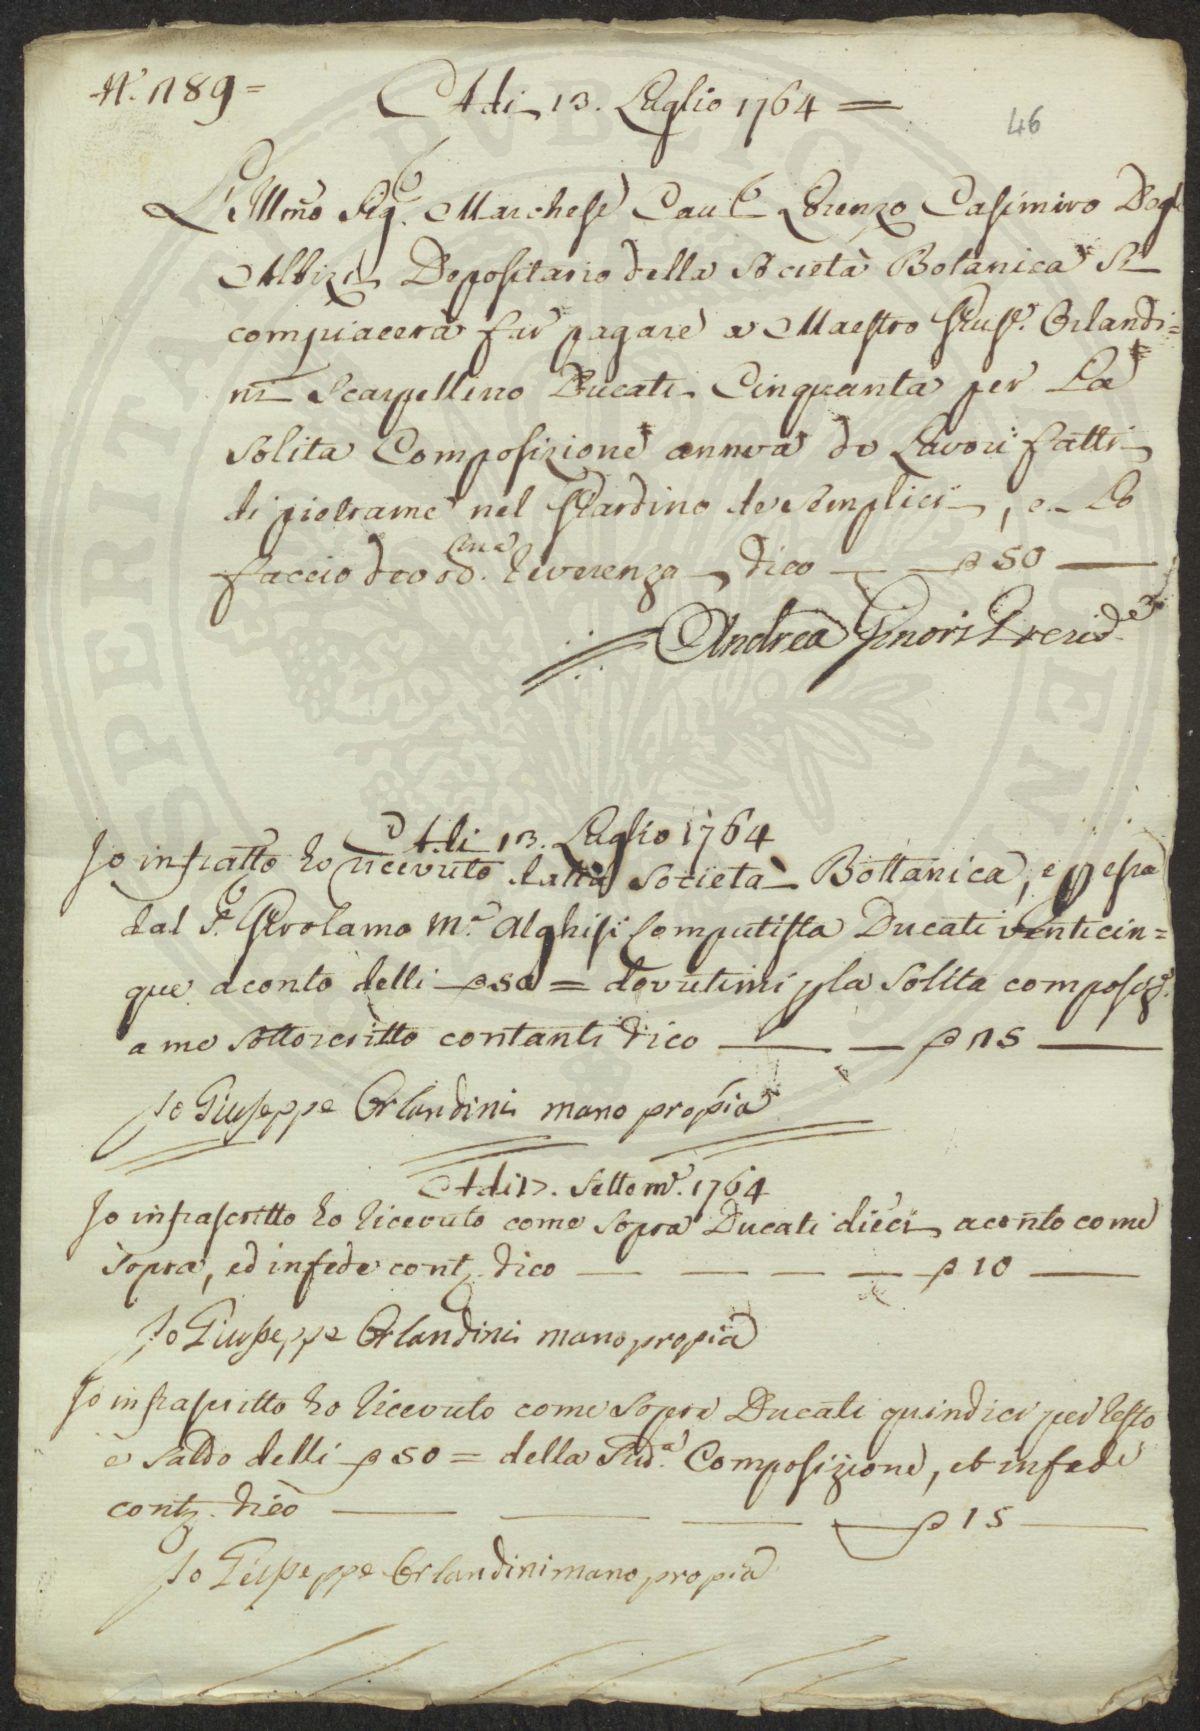 N.° 189 =
Adi 13. Luglio 1764 =
46
L'Illmo Sig.e Marchese Cau.e Lorenzo Casimiro Degl
Albizi Depositario della Società Botanica Si
compiacerà far pagare a Maestro Gius.e Orlandi=
ni Scarpellino Ducati Cinquanta per La
Solita Composizione annua de Lavori fatti
di pietrame nel Giardino de Semplici, e Lo
faccio dev.ma reverenza, dico ₽ 50
Andrea Ginori Presid.e
Adi 13. Luglio 1764
Io infratto ho ricevuto dalla Società Bottanica, e p essa
dal S.e Girolamo M.a Alghisi Computista Ducati venticin=
que aconto delli ₽ 50 = dovutimi p la Solita composiz.e
a me sottoscritto contanti dico ₽ 25
Io Giuseppe Orlandini mano propia
Adi 17. Settem.e 1764
Io infrascritto ho ricevuto come sopra Ducati dieci aconto come
sopra, ed infede cont. dico ₽ 10
Io Giuseppe Orlandini mano propia
Io infrascritto ho ricevuto come Sopra Ducati quindici per resto
e Saldo delli ₽ 50 = della Sud.a Composizione, et infede
cont. dico ₽ 15
Io Giuseppe Orlandini mano propia